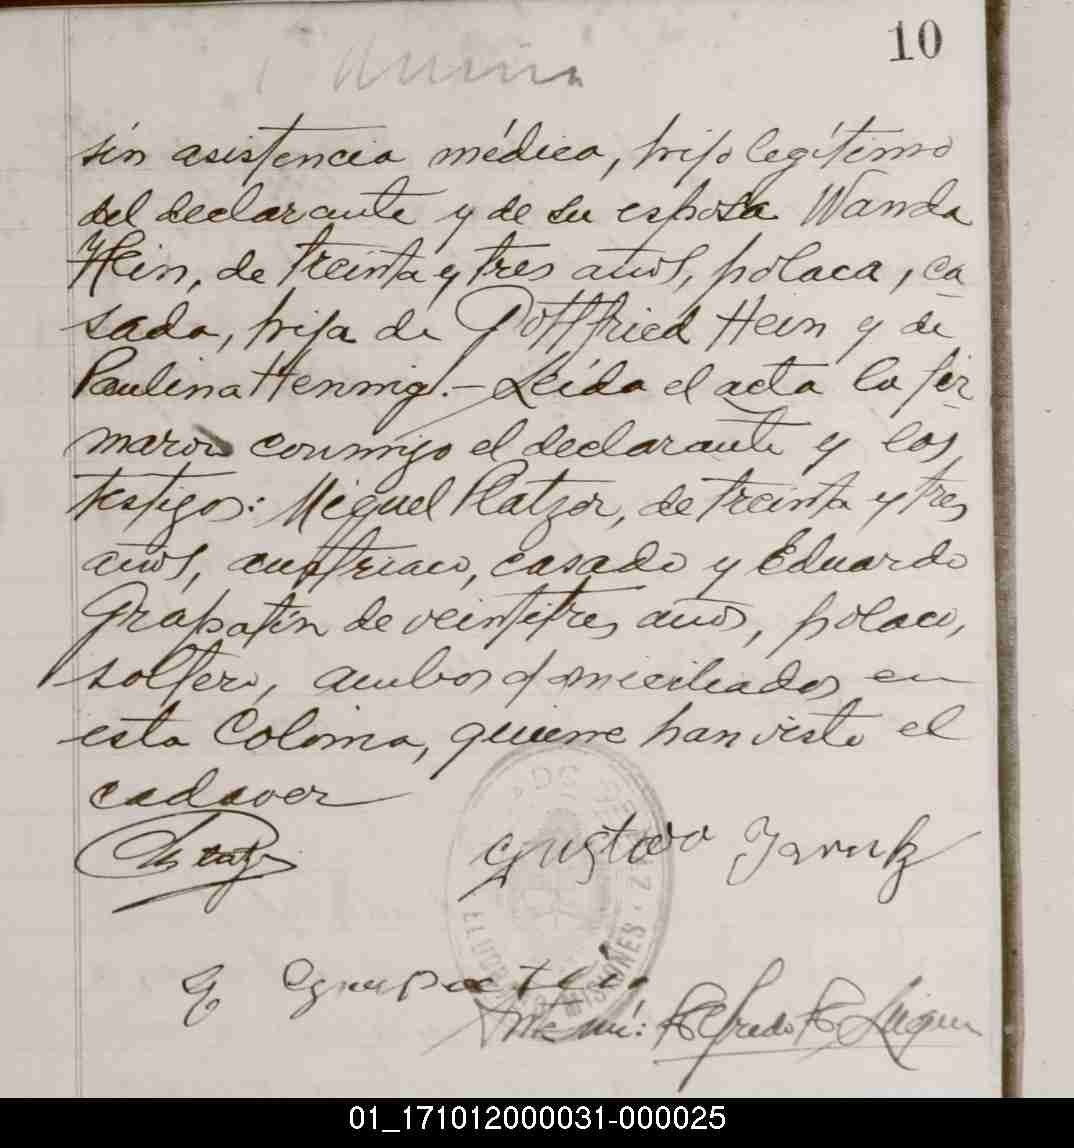 10
sin asistencia médica, hijo legítimo
del declarante y de su esposa Wanda
Hein, de treinta y tres años, polaca, ca
sada, hija de Gottfried Hein y de
Paulina Hennig.- Leída el acta la fir
maron conmigo el declarante y los
testigos: Miguel Platzer, de treinta y tres
años, austriaco, casado y Eduardo
Grapatin de veintitres años, polaco,
soltero, ambos domiciliados en
esta Colonia, quiene han visto el
cadaver
Gustavo
E Grapatin
MISIONES
Ante mí: Alfredo
01_171012000031-000025